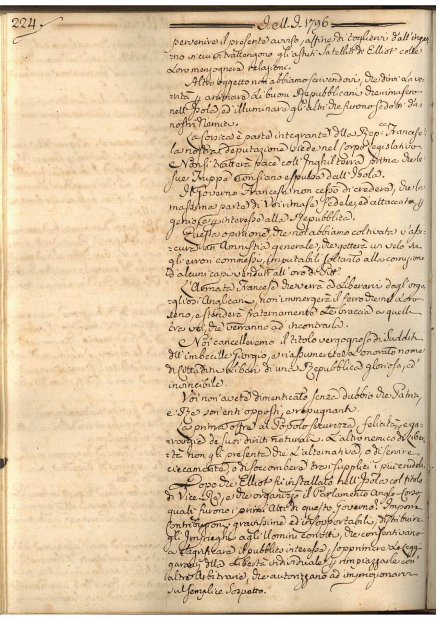 224.
D. M. D. 1796
pervenire il presente avviso, affine di togliervi dall'ingan
no in cui vi trattengono gli astuti satelliti di Elliot colle
loro mensognere relazioni.
Altro oggetto non abbiamo scrivendovi, che dirvi la ve
rità, y animare li buoni Republicani che rimasero
nell'Isola, ed illuminare gl'altri che furono sedotti da
nostri nemici.
La Corsica è parte integrante della Rep.ca Francese
la nostra deputazione siede nel corpo legislativo
Non si tratterà pace coll'Inghilterra prima che le
sue Truppe non siano espulse dall'Isola.
Il Governo Francese non cessò di credere, che la
massima parte di Voi rimase fedele, ed attaccata y
genio, e y interesse alla Republica.
Questa opinione, che noi abbiamo coltivata v'as
sicura un Amnistia generale, che getterà un velo su
gli errori commessi, imputabili soltanto alla corruzione
d'alcuni capi venduti all'oro di Pitt.
L'Armata Francese che verrà a liberarvi dagl'orgo
gliosi Anglicani, non immergerà il ferro che nel loro
seno, e stenderà fraternamente le braccia a quelli
tra voi, che verranno ad incontrarla.
Noi cancelleremo il titolo vergognoso di Sudditi
dell'imbecille Giorgio, e riassumerete l'onorato nome
di Cittadini liberi di una Republica gloriosa, ed
invincibile.
Voi non avete dimenticato senza dubbio che Patria,
e Re son enti opposti, e repugnanti.
La prima offre al Popolo sicurezza, felicità, e ga
ranzie de' suoi diritti naturali. L'altro nemico di liber
tà non gli presenta che l'alternativa, o di servire
ciecamente, o di soccombere tra i supplici i più crudeli.
Dopo che Elliot si è installato nell'Isola col titolo
di Vice-Re, e che organizzò il Parlamento Anglo-Corso
quali furono i primi Atti di questo Governo? Imporre
Contribuzioni gravissime ed insopportabili, distribuire
gl'Impieghi agl'Uomini corrotti, che consentivano
a sagrificare il publico interesse, sopprimere le leggi
garanti della libertà individuale, y rimpiazzarle con
altre Arbitrarie, che autorizzano ad imprigionarvi
sul semplice sospetto.